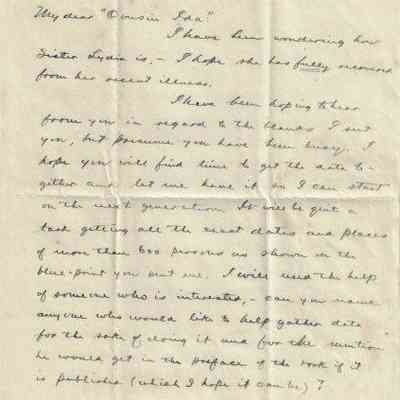 My dear "Cousin Ida"
I have been wondering how
Sister Lydia is, - I hope she has fully recovered
from her recent illness.
I have been hoping to hear
from you in regard to the blanks I sent
you, but presume you have been busy. I
hope you will find time to get the data to-
gether and let me have it so I can start
on the next generation. It will be quite a
task getting all the exact dates and places
of more than 600 persons as shown on the
blue-print you sent me. I will need the help
of someone who is interested, - can you name
anyone who would like to help gather data
for the sake of doing it and for the "mention"
he would get in the preface of the book if it
is published (which I hope it can be)?